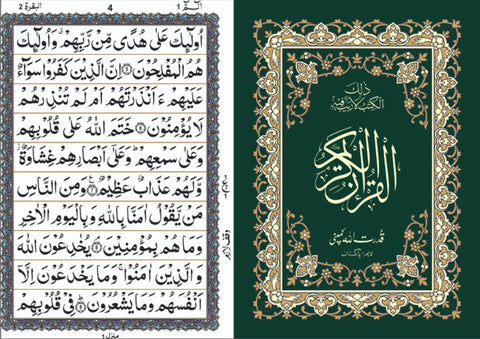 البقرة ٢
4
الٓمّٓ ١
اُولٰٓئِكَ عَلٰى هُدًى مِّنْ رَّبِّهِمْ ۙ وَاُولٰٓئِكَ
هُمُ الْمُفْلِحُوْنَ ۝ اِنَّ الَّذِيْنَ كَفَرُوْا سَوَآءٌ
عَلَيْهِمْ ءَاَنْذَرْتَهُمْ اَمْ لَمْ تُنْذِرْهُمْ
لَا يُؤْمِنُوْنَ ۝ خَتَمَ اللّٰهُ عَلٰى قُلُوْبِهِمْ
وَعَلٰى سَمْعِهِمْ ؕ وَعَلٰٓى اَبْصَارِهِمْ غِشَاوَةٌ ؗ
وَّلَهُمْ عَذَابٌ عَظِيْمٌ ۝ وَمِنَ النَّاسِ
مَنْ يَّقُوْلُ اٰمَنَّا بِاللّٰهِ وَبِالْيَوْمِ الْاٰخِرِ
وَمَا هُمْ بِمُؤْمِنِيْنَ ۝ يُخٰدِعُوْنَ اللّٰهَ
وَالَّذِيْنَ اٰمَنُوْا ۚ وَمَا يَخْدَعُوْنَ اِلَّآ
اَنْفُسَهُمْ وَمَا يَشْعُرُوْنَ ۝ فِيْ قُلُوْبِهِمْ
وقف لازم
منزل ١
ذٰلِكَ
الْكِتٰبُ لَا رَيْبَ فِيْهِ
القرآن الكريم
قدرت اللہ کمپنی
لاہور، پاکستان